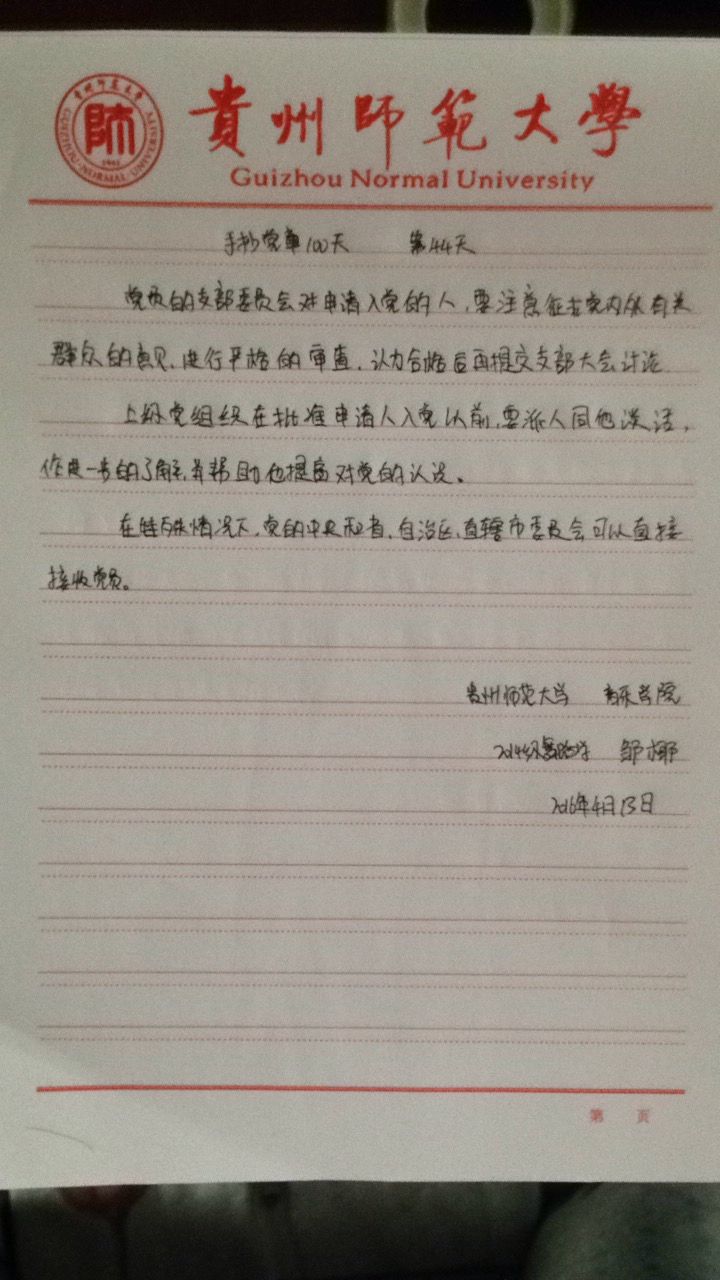 貴州師範大學
貴州師范大學
GUIZHOU NORMAL UNIVERSITY
師
1941
Guizhou Normal University
手抄党章100天 第44天
党员的支部委员会对申请入党的人,要注意征求党内外有关
群众的意见,进行严格的审查,认为合格后再提交支部大会讨论
上级党组织在批准申请人入党以前,要派人同他谈话,
作进一步的了解,并帮助他提高对党的认识。
在特殊情况下,党的中央和省,自治区,直辖市委员会可以直接
接收党员。
贵州师范大学 音乐学院
2014级 邹椰
2016年4月13日
第 页